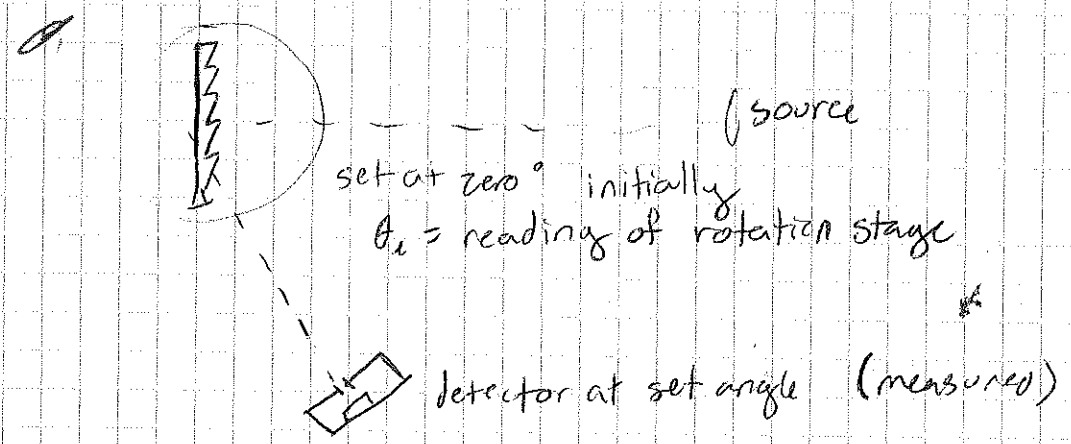 source
set at zero° initially
θi = reading of rotation stage
detector at set angle (measured)